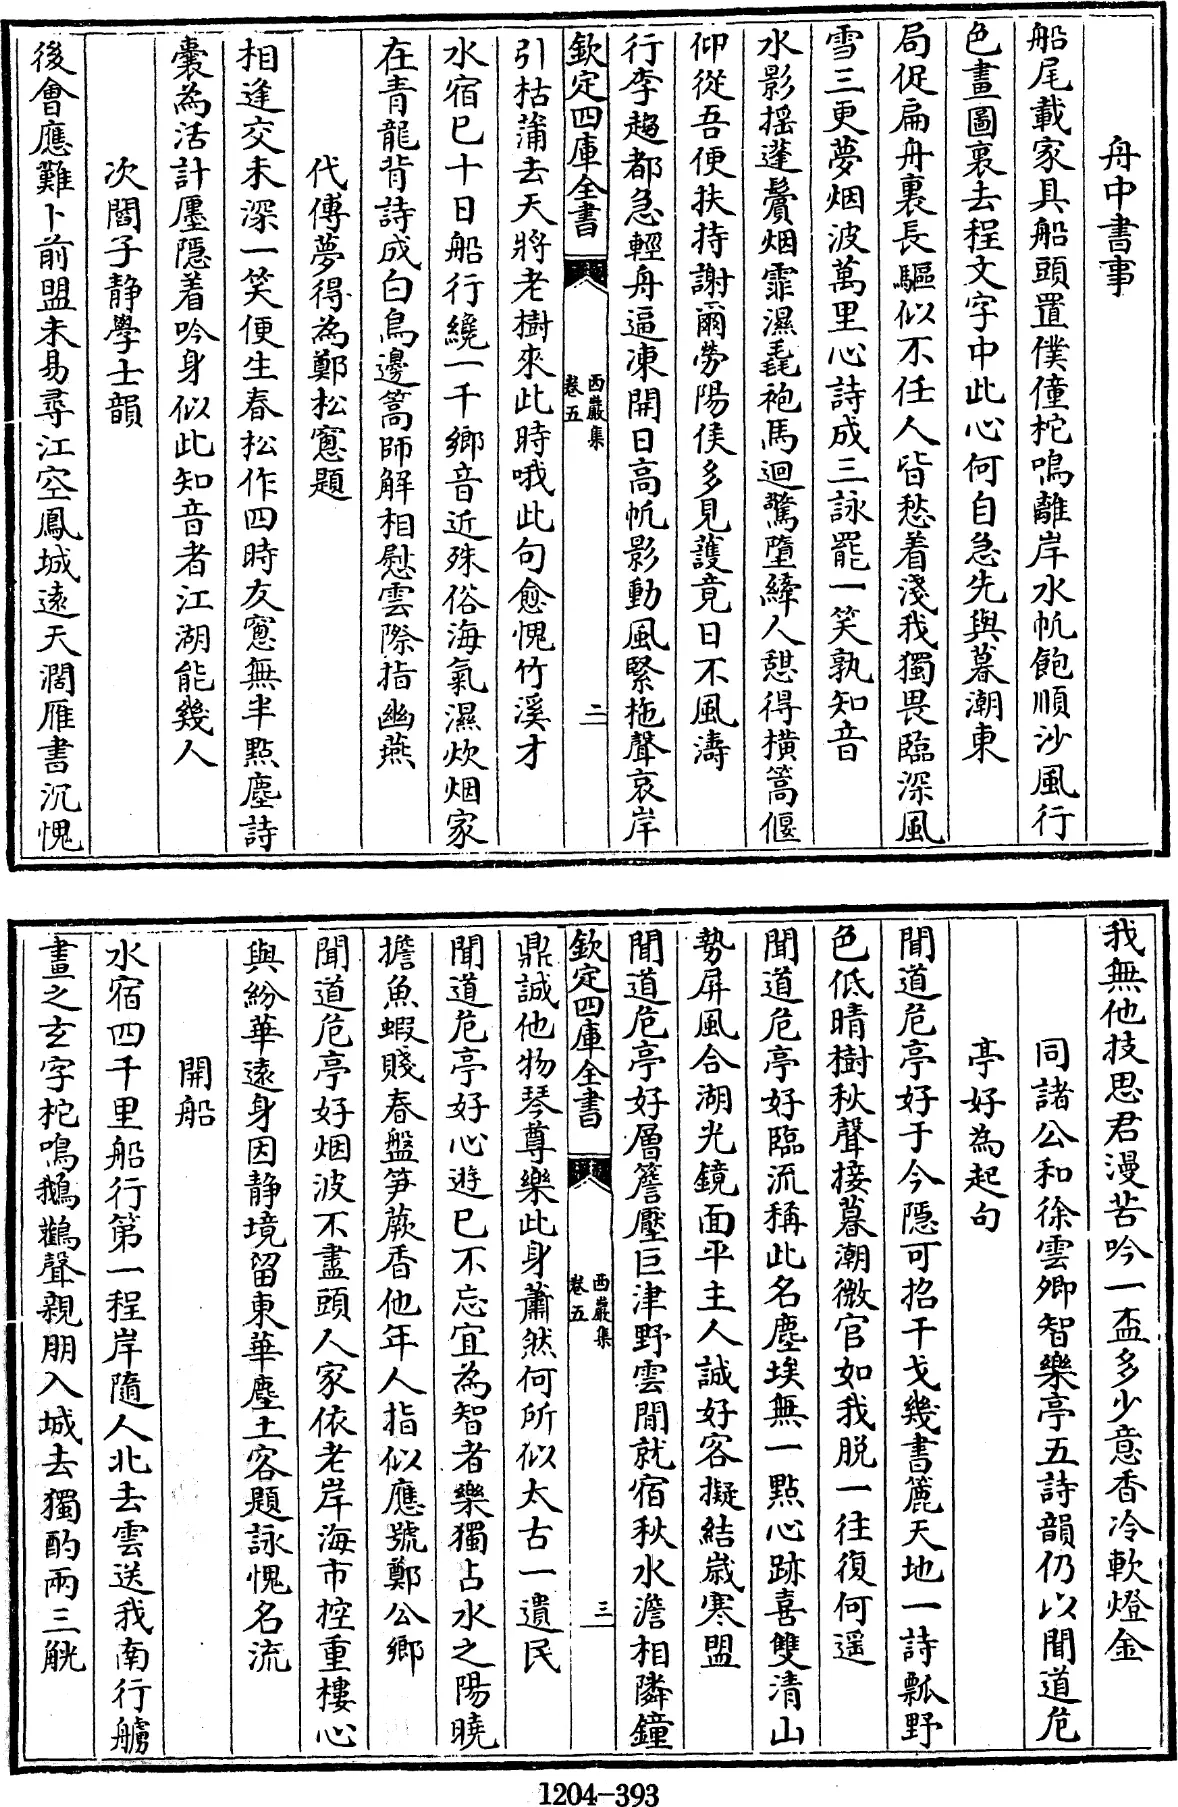 舟中書事
船尾載家具船頭置僕僮柁鳴離岸水帆飽順沙風行
色畫圖裏去程文字中此心何自急先與暮潮東
局促扁舟裏長驅似不任人皆愁着淺我獨畏臨深風
雪三更夢烟波萬里心詩成三詠罷一笑孰知音
水影揺蓬鬢烟霏濕毳袍馬迴驚墮絳人憇得横篙偃
仰從吾便扶持謝爾勞陽侯多見護竟日不風濤
行李趨都急輕舟逼凍開日高帆影動風緊拖聲哀岸
欽定四庫全書
西巖集
卷五
二
引枯蒲去天將老樹來此時哦此句愈愧竹溪才
水宿已十日船行纔一千鄉音近殊俗海氣濕炊烟家
在青龍背詩成白鳥邊篙師解相慰雲際指幽燕
代傅夢得為鄭松窻題
相逢交未深一笑便生春松作四時友窻無半點塵詩
囊為活計廛隱着吟身似此知音者江湖能幾人
次閻子静學士韻
後會應難卜前盟未易尋江空鳳城逺天濶雁書沉愧
我無他技思君漫苦吟一盃多少意香冷軟燈金
同諸公和徐雲卿智樂亭五詩韻仍以聞道危
亭好為起句
聞道危亭好于今隠可招干戈幾書簏天地一詩瓢野
色低晴樹秋聲接暮潮微官如我脱一往復何遥
聞道危亭好臨流稱此名塵埃無一點心跡喜雙清山
勢屏風合湖光鏡面平主人誠好客擬結嵗寒盟
聞道危亭好層簷壓巨津野雲閒就宿秋水澹相隣鐘
欽定四庫全書
西巖集
卷五
三
鼎誠他物琴尊樂此身蕭然何所似太古一遺民
聞道危亭好心遊已不忘宜為智者樂獨占水之陽曉
擔魚蝦賤春盤笋蕨香他年人指似應號鄭公鄉
聞道危亭好烟波不盡頭人家依老岸海市控重樓心
與紛華逺身因静境留東華塵土客題詠愧名流
開船
水宿四千里船行第一程岸隨人北去雲送我南行艣
畫之玄字柁鳴鵝鸛聲親朋入城去獨酌兩三觥
1204-393